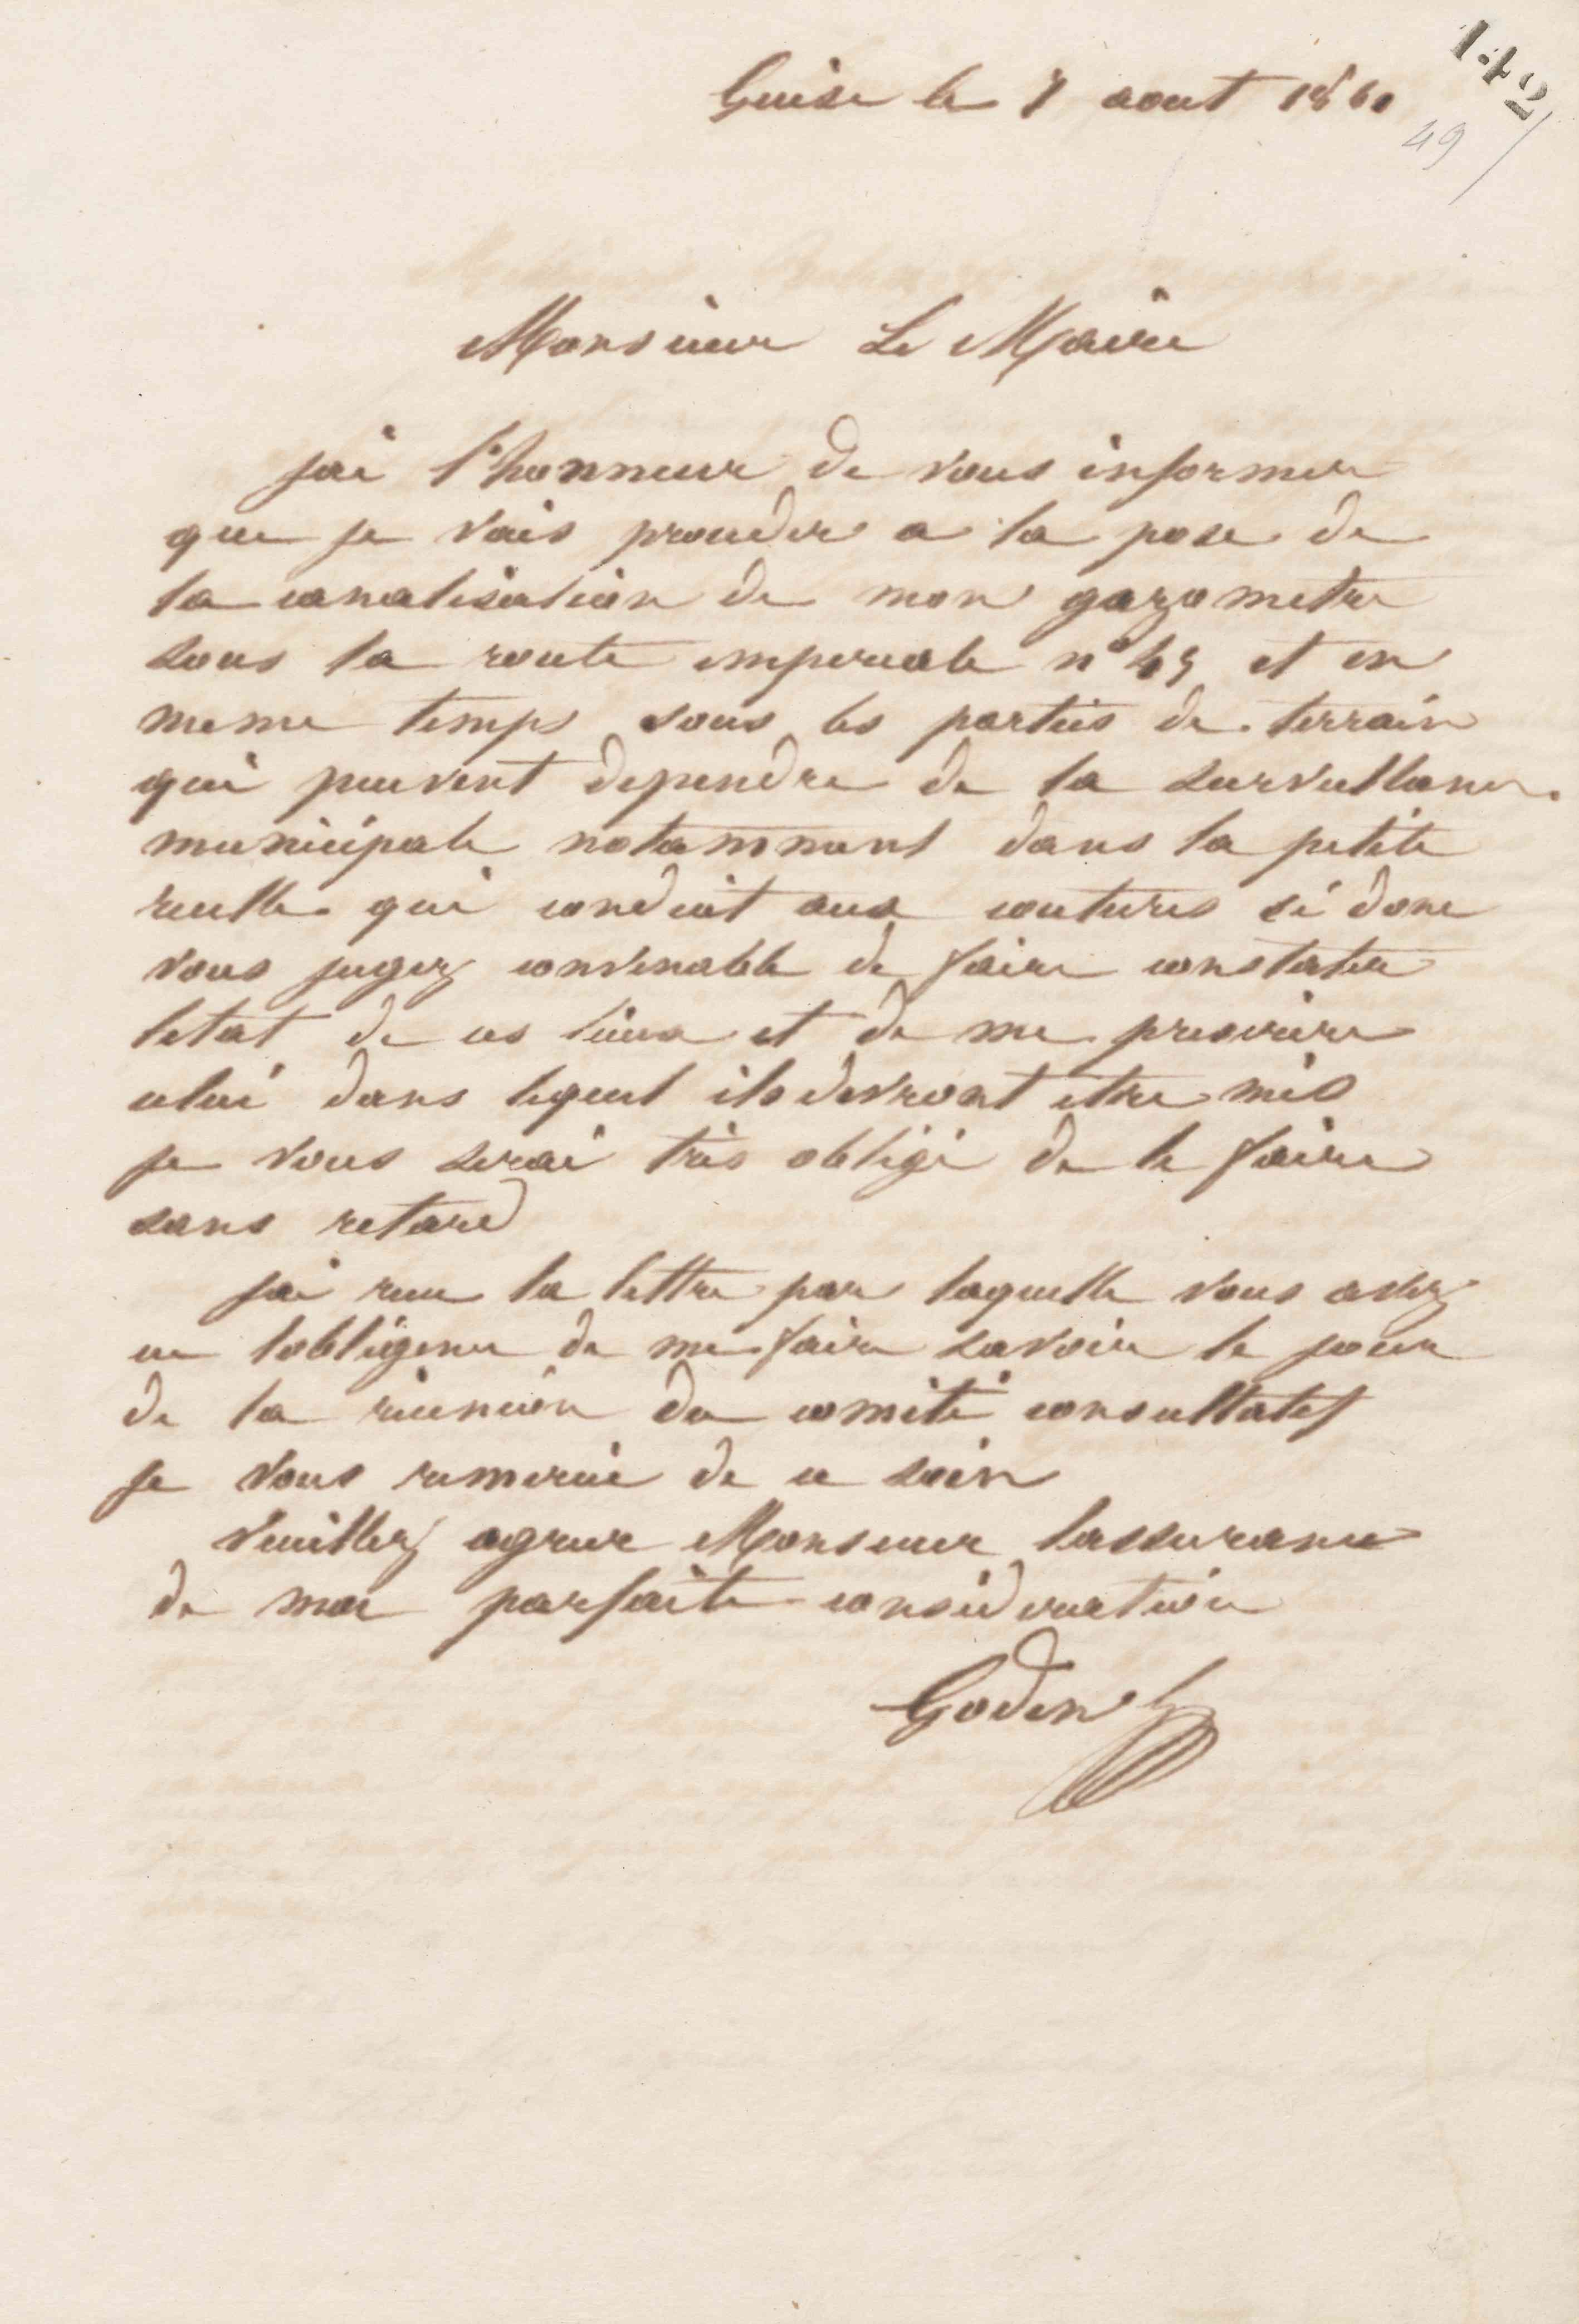 142
49
Guise le 7 aout 1860
Monsieur Le Maire
jai l'honneur de vous informer
que je vais proceder a la pose de
la canalisation de mon gazometre
sous la route imperiale n° 45 et en
meme temps sous les parties de terrain
qui peuvent dependre de la surveillance
municipale notamment dans la petite
ruelle qui conduit aux coutures si donc
vous jugez convenable de faire constater
letat de ces lieux et de me prescrire
celui dans lequel ils devront etre mis
je vous serai très obligé de le faire
sans retard
jai recu la lettre par laquelle vous avez
eu lobligence de me faire savoir le jour
de la réunion du comité consultatif
je vous remercie de ce soin
Veuillez agreer Monsieur lassurance
de ma parfaite consideration
Godin